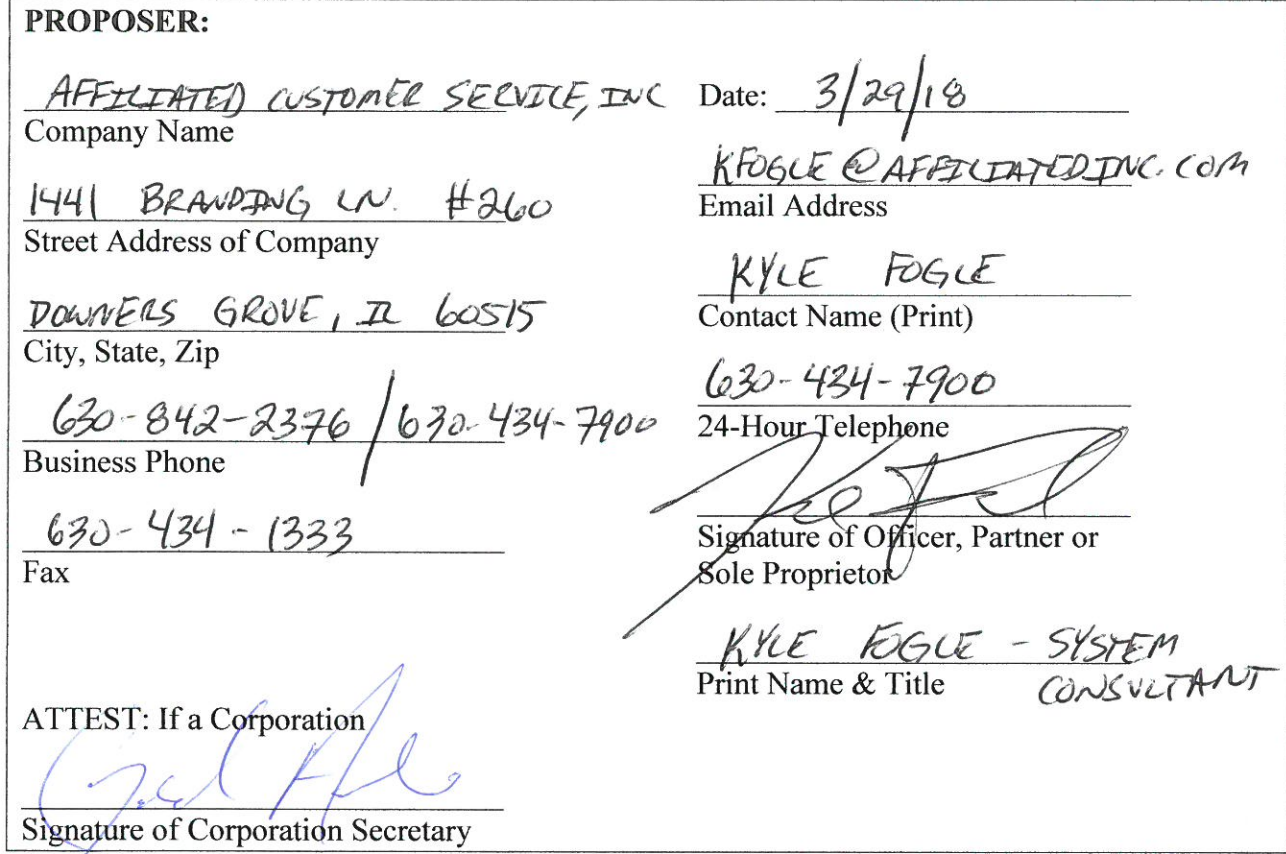 PROPOSER:
AFFILIATED CUSTOMER SERVICE, INC
Company Name
1441 BRANDING LN. #260
Street Address of Company
DOWNERS GROVE, IL 60515
City, State, Zip
630-842-2376 / 630-434-7900
Business Phone
630-434-1333
Fax
ATTEST: If a Corporation
Signature of Corporation Secretary
Date: 3/29/18
KFOGLE@AFFILIATEDINC.COM
Email Address
KYLE FOGLE
Contact Name (Print)
630-434-7900
24-Hour Telephone
Signature of Officer, Partner or
Sole Proprietor
KYLE FOGLE - SYSTEM
CONSULTANT
Print Name & Title